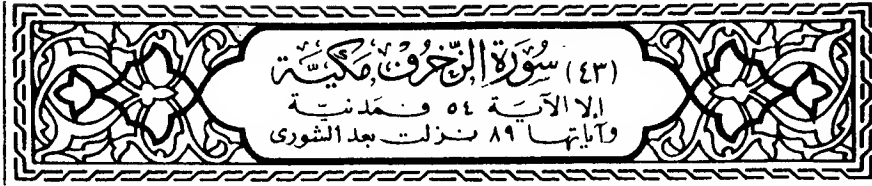 (٤٣) سُورَةُ الزُّخْرُفِ مَكِّيَّة
إلا الآيَة ٥٤ فمَدنيّة
وآياتها ٨٩ نزلت بعد الشورى